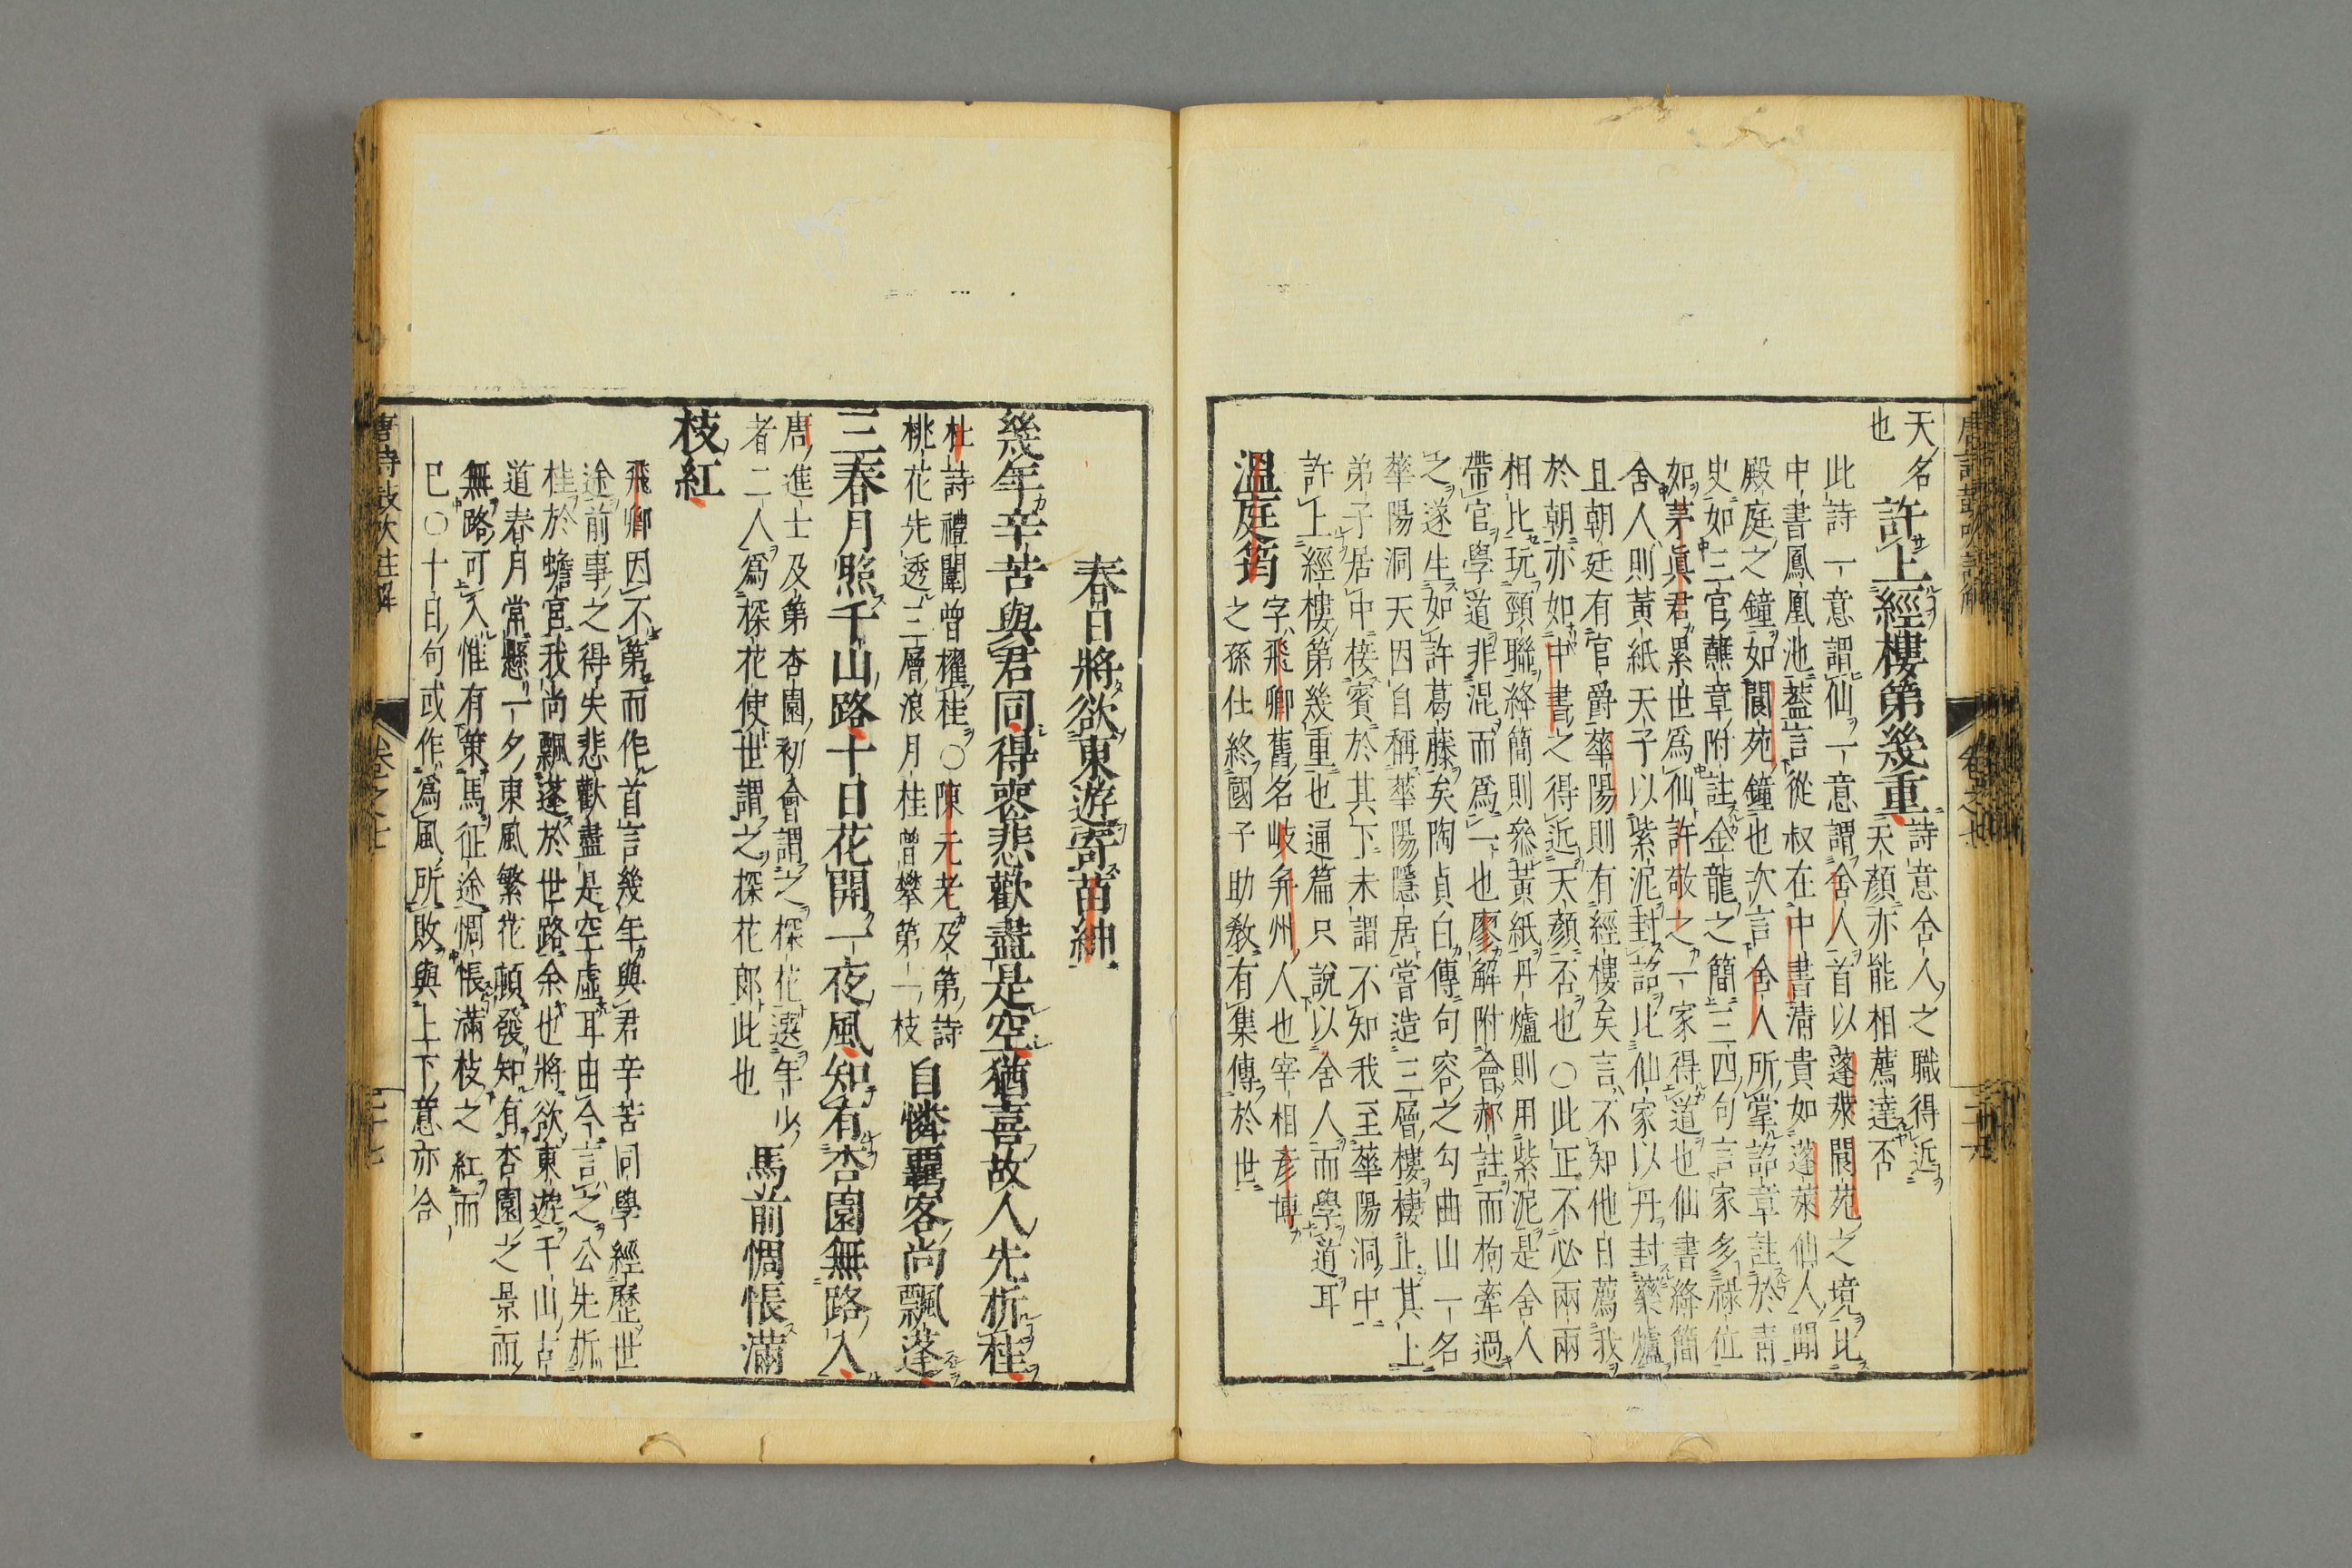 唐詩鼓吹註解
卷之七
天名
也
許上經樓第幾重
詩意舍人之職得近
天顏亦能相薦達否
此詩一意謂仙一意謂舍人首以蓬萊閬苑之境比
中書鳳凰池蓋言從叔在中書清貴如蓬萊仙人聞
殿庭之鐘如閬苑鐘也次言舍人所掌詔章註於青
史如三官蘸章附註金龍之簡三四句言家多祿位
如茅眞君累世爲仙許敬之一家得道也仙書絳簡
舍人則黃紙天子以紫泥封詔比仙家以丹封藥爐
且朝廷有官爵華陽則有經樓矣言不知他日薦我
於朝亦如中書之得近天顏否也○此正不必兩兩
相比玩頸聯絳簡則叅黃紙丹爐則用紫泥是舍人
帶官學道非混而爲一也廖解附會郝註而枸牽過
之遂生如許葛藤矣陶貞白傳句容之勾曲山一名
華陽洞天因自稱華陽隱居當造三層樓棲止其上
弟子居中接賓於其下未謂不知我至華陽洞中
許上經樓第幾重也通篇只說以舍人而學道耳
溫庭筠
字飛卿舊名岐并州人也宰相彥博
之孫仕終國子助教有集傳於世
春日將欲東遊寄苗紳
幾年辛苦與君同得喪悲歡盡是空猶喜故人先折桂
杜詩禮闈曾擢桂○陳元老及第詩
桃花先透三層浪月桂曾攀第一枝
自憐羈客尚飄蓬
三春月照千山路十日花開一夜風知有杏園無路入
唐進士及第杏園初會謂之探花選年少
者二人爲探花使世謂之探花郎此也
馬前惆悵滿
枝紅
飛卿因不第而作首言幾年與君辛苦同學經歷世
途前事之得失悲歡盡是空虛耳由今言之公先折
桂於蟾宮我尚飄蓬於世路余也將欲東遊千山古
道春月常懸一夕東風繁花頓發知有杏園之景而
無路可入惟有策馬征途惆悵滿枝之紅而
巳○十日句或作爲風所敗與上下意亦合
唐詩鼓吹註解
卷之七